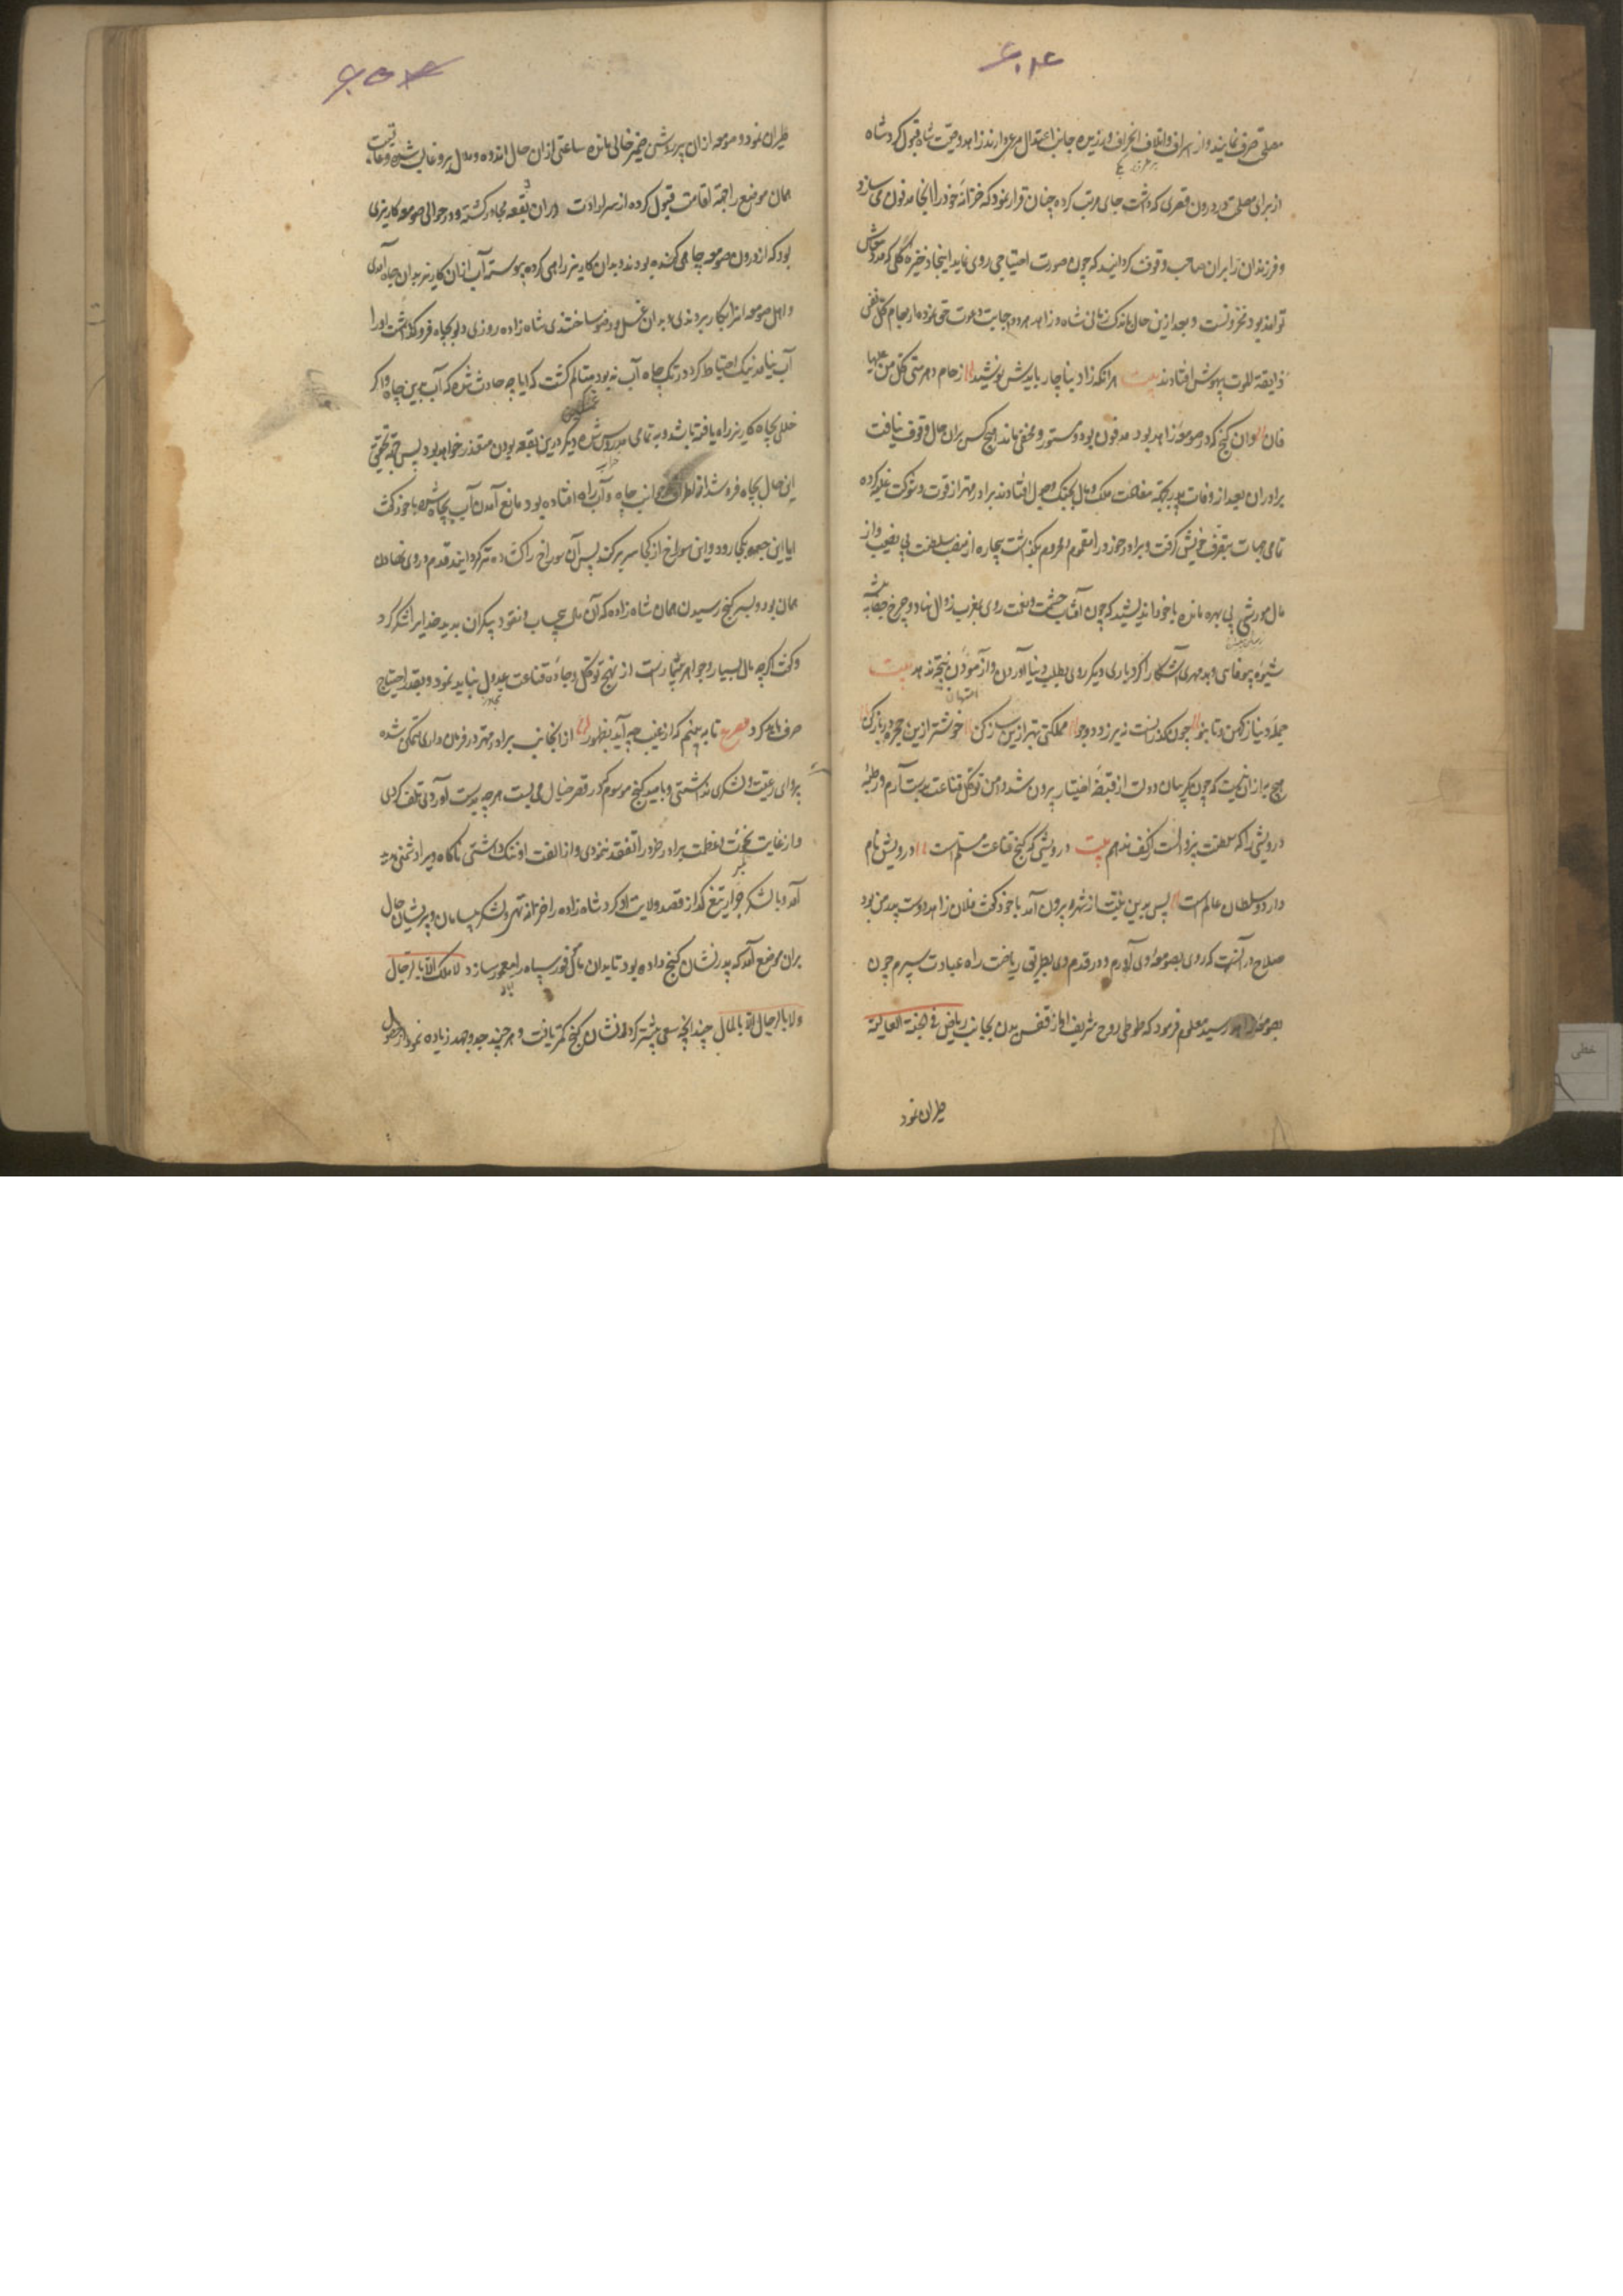 مصلحی صرف نمایند و از اسراف و اتلاف انحراف ورزیده جانب اعتدال مرعی دارند زاهد وصیت شاه قبول کرد و شاه
از برای مصلحت در درون قصری که داشت جای مرتب کرده چنان قرار نمود که خزانهٔ خود را اینجا مدفون می سازد
و فرزندان را بران صاحب وقوف گردانید که چون صورت احتیاجی روی نماید اینجا ذخیرهٔ کلی که مدد معاش
تواند بود مخزونست و بعد ازین حال باندک زمانی شاه و زاهد هر دو اجابت دعوت حق نموده از جام کل نفس
ذایقة الموت بیهوش افتادند بیت هر انکه زاد بناچار بایدش نوشید ز جام دهر می کل من علیها
فان وان گنج که در صومعهٔ زاهد بود مدفون بود و مستور و مخفی ماند هیچ کس بران حال وقوف نیافت
برادران بعد از وفات پدر بجهة مقاسمت ملک و مال بجنگ و جدل افتادند برادر مهتر از قوت و شوکت غلبه کرده
تمامی جهات بتصرف خویش گرفت و برادر خورد را مغموم و محروم بگذاشت بیچاره از منصب سلطنت بی نصیب و از
مال موروثی بی بهره مانده با خود اندیشید که چون آفتاب حشمت و نعمت روی بمغرب زوال نهاد و چرخ جفا پیشه
شیوهٔ بیوفایی و بدمهری آشکارا کرد باری دیگر روی بطلب دنیا آوردن و آزموده آزمودن نتیجه ندهد بیت
جمله دنیا ز کهن تا بنو چون گذرنده است نیرزد دو جو مملکتی بهتر ازین ساز کن خوشتر ازین حجره در باز کن
هیچ به ازان نیست که چون گریبان دولت از قبضهٔ اختیار بیرون شد دامن توکل و قناعت بدست آرم و طریقه
درویشی را که سلطنت بی زوالست از کف ندهم بیت درویشی که گنج قناعت مسلم است درویش نام
دارد و سلطان عالم است پس بدین نیت از شهر بیرون آمد با خود گفت فلان زاهد دوست پدر من بود
صلاح در آنست که روی بصومعهٔ وی آورم و در قدم وی بطریق ریاضت راه عبادت سپرم چون
بصومعهٔ زاهد رسید معلوم فرمود که طوطی روح شریف او از قفس بدن بجانب ریاض فی الجنة العالیة
طیران نمود
طیران نموده و صومعه ازان پیر روشن ضمیر خالی مانده ساعتی ازان حال اندوه و ملال برو غالب شده و عاقبت
همان موضع را جهة اقامت قبول کرده از سر ارادت دران بقعه مجاور گشته و در حوالی صومعه کاریزی
بود که از درون صومعه چاهی کنده بودند و بدان کاریز راهی کرده پیوسته آب ازان کاریز بدان چاه آمدی
و اهل صومعه انرا بکار بردندی و بدان غسل و وضو ساختندی شاه زاده روزی دلو بچاه فرو گذاشت آواز
آب نیامد نیک احتیاط کرد در تک چاه آب نبود متامل گشت که ایا چه حادث شد که آب بدین چاه و اگر
خللی بچاه و کاریز راه یافته باشد و به تمامی مدروس شده دیگر درین بقعه بودن متعذر خواهد بود پس جهة تحقیق
این حال بچاه فرو شد از اطراف و جوانب چاه و آب راه افتاده بود مانع آمدن آب بچاه شده با خود گفت
ایا این حجره بکجا رود و این سوراخ از کجا سر بر کند پس آن سوراخ را گشاده تر گردانید قدم در وی نهادن
همان بود و بسر گنج رسیدن همان شاه زاده که آن مال بی حساب و نقود بیکران بدید خدایرا شکر کرد
و گفت اگرچه مال بسیار و جواهر بیشمارست از نهج توکل و جادهٔ قناعت عدول نباید نمود و بقدر احتیاج
صرف باید کرد مصرع تا به بینیم که از غیب چه آید بظهور از انجانب برادر مهتر در فرمان داری متمکن شده
پروای رعیت و لشکری نداشتی و بامید گنج موهوم که در قصر خیال می بست هر چه بدست آوردی تلف کردی
و از غایت نخوت و عظمت برادر خرد را تفقد ننمودی و از الفت او ننگ داشتی ناگاه ویرا دشمنی پدید
آمد و با لشکر جرار تیغ گذار قصد ولایت او کرد شاه زاده را خزانه تهی و لشکر بیسامان و پریشان حال
بران موضع آمد که پدر نشان گنج داده بود تا بدان مال موفور سپاه را معمور سازد لا ملک الا بالرجال
و لا رجال الا بالمال چندانکه سعی بیشتر کرد نشان گنج کمتر یافت و هر چند جد و جهد زیاده نمود از حصول